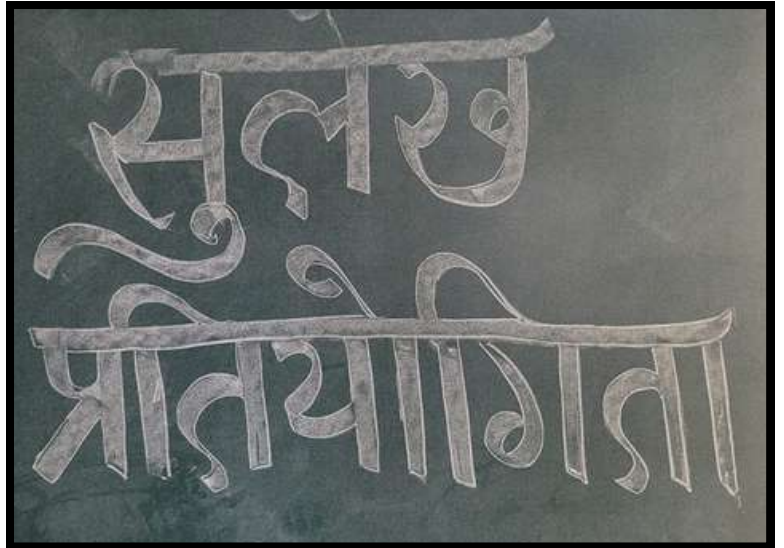 सुलेख
प्रतियोगिता